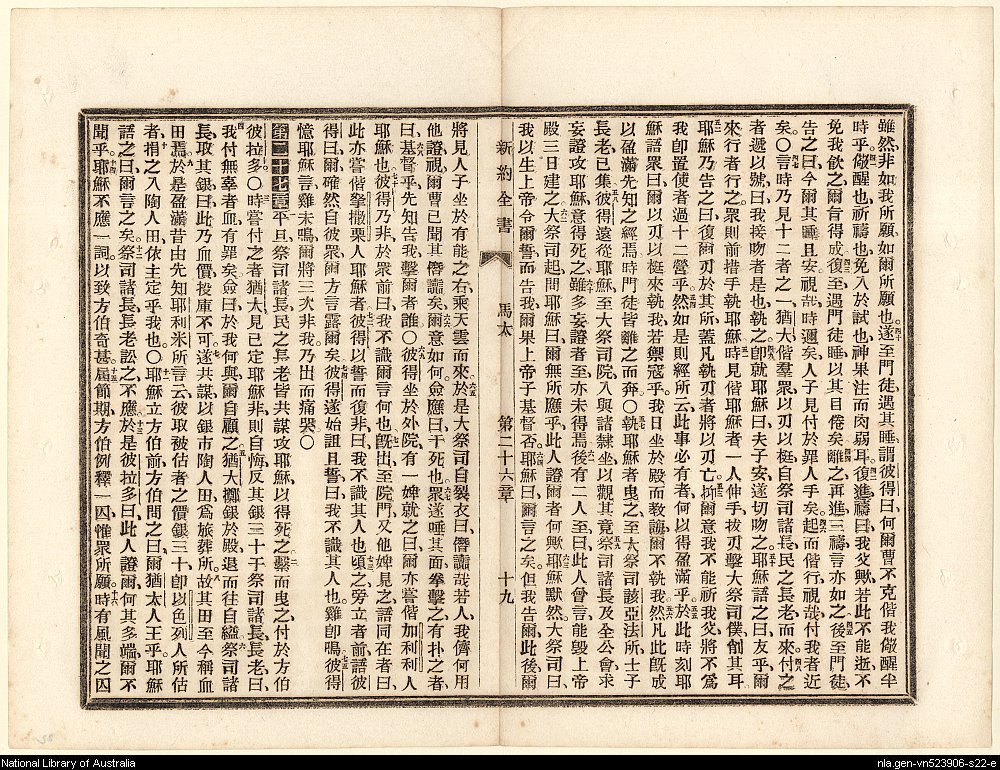 雖然非如我所願如爾所願也遂至門徒遇其睡謂彼得曰何爾曹不克偕我儆醒半
時乎儆醒也祈禱也免入於試也神果注而肉弱耳復進禱曰我父歟若此不能逝不
免我飲之爾旨得成復至遇門徒睡以其目倦矣離之再進三禱言亦如之後至門徒
告之曰今爾其睡且安視哉時邇矣人子見付於罪人手矣起而偕行視哉付我者近
矣〇言時乃見十二者之一猶大偕羣眾以刃以梃自祭司諸長民之長老而來付之
者遞以號曰我接吻者是也執之卽就耶穌曰夫子安遂切吻之耶穌語之曰友乎爾
來行者行之眾則前措手執耶穌時見偕耶穌者一人伸手拔刃擊大祭司僕創其耳
耶穌乃告之曰復爾刃於其所蓋凡執刃者將以刃亡抑爾意我不能祈我父將不爲
我卽置使者過十二營乎然如是則經所云此事必有者何以得盈滿乎於此時刻耶
穌語眾曰爾以刃以梃來執我若禦寇乎我日坐於殿而敎誨爾不執我然凡此旣成
以盈滿先知之經焉時門徒皆離之而奔〇執耶穌者曳之至大祭司該亞法所士子
長老已集彼得遠從耶穌至大祭司院入與諸隸坐以觀其竟祭司諸長及全公會求
妄證攻耶穌意得死之雖多妄證者至亦未得焉後有二人至曰此人曾言能毀上帝
殿三日建之大祭司起問耶穌曰爾無所應乎此人證爾者何歟耶穌默然大祭司曰
我以生上帝令爾誓而告我爾果上帝子基督否耶穌曰爾言之矣但我告爾此後爾
新約全書 馬太 第二十六章 十九
將見人子坐於有能之右乘天雲而來於是大祭司自裂衣曰僭讟哉若人我儕何用
他證視爾曹已聞其僭讟矣爾意如何僉應曰干死也眾遂唾其面拳擊之有扑之者
曰基督乎先知告我擊爾者誰〇彼得坐於外院有一婢就之曰爾亦嘗偕加利利人
耶穌也彼得乃非於眾前曰我不識爾言何也旣出至院門又他婢見之語同在者曰
此亦嘗偕拏撒栗人耶穌者彼得以誓而復非曰我不識其人也頃之旁立者前語彼
得曰爾確然自彼得眾爾方言露爾矣彼得遂始詛且誓曰我不識其人也雞卽鳴彼得
憶耶穌言雞未鳴爾將三次非我乃出而痛哭〇
第二十七章平旦祭司諸長民之長老皆共謀攻耶穌以得死之繫而曳之付於方伯
彼拉多〇時嘗付之者猶大見已定耶穌非則自悔反其銀三十于祭司諸長長老曰
我付無辜者血有罪矣僉曰於我何與爾自顧之猶大擲銀於殿退而往自縊祭司諸
長取其銀曰此乃血價投庫不可遂共謀以銀市陶人田爲旅葬所故其田至今稱血
田焉於是盈滿昔由先知耶利米所言云彼取被估者之價銀三十卽以色列人所估
者捐之入陶人田依主定乎我也〇耶穌立方伯前方伯問之曰爾猶太人王乎耶穌
語之曰爾言之矣祭司諸長長老訟之不應於是彼拉多曰此人證爾何其多端爾不
聞乎耶穌不應一詞以致方伯奇甚屆節期方伯例釋一囚惟眾所願時有風聞之囚
National Library of Australia
nla.gen-vn523906-s22-e